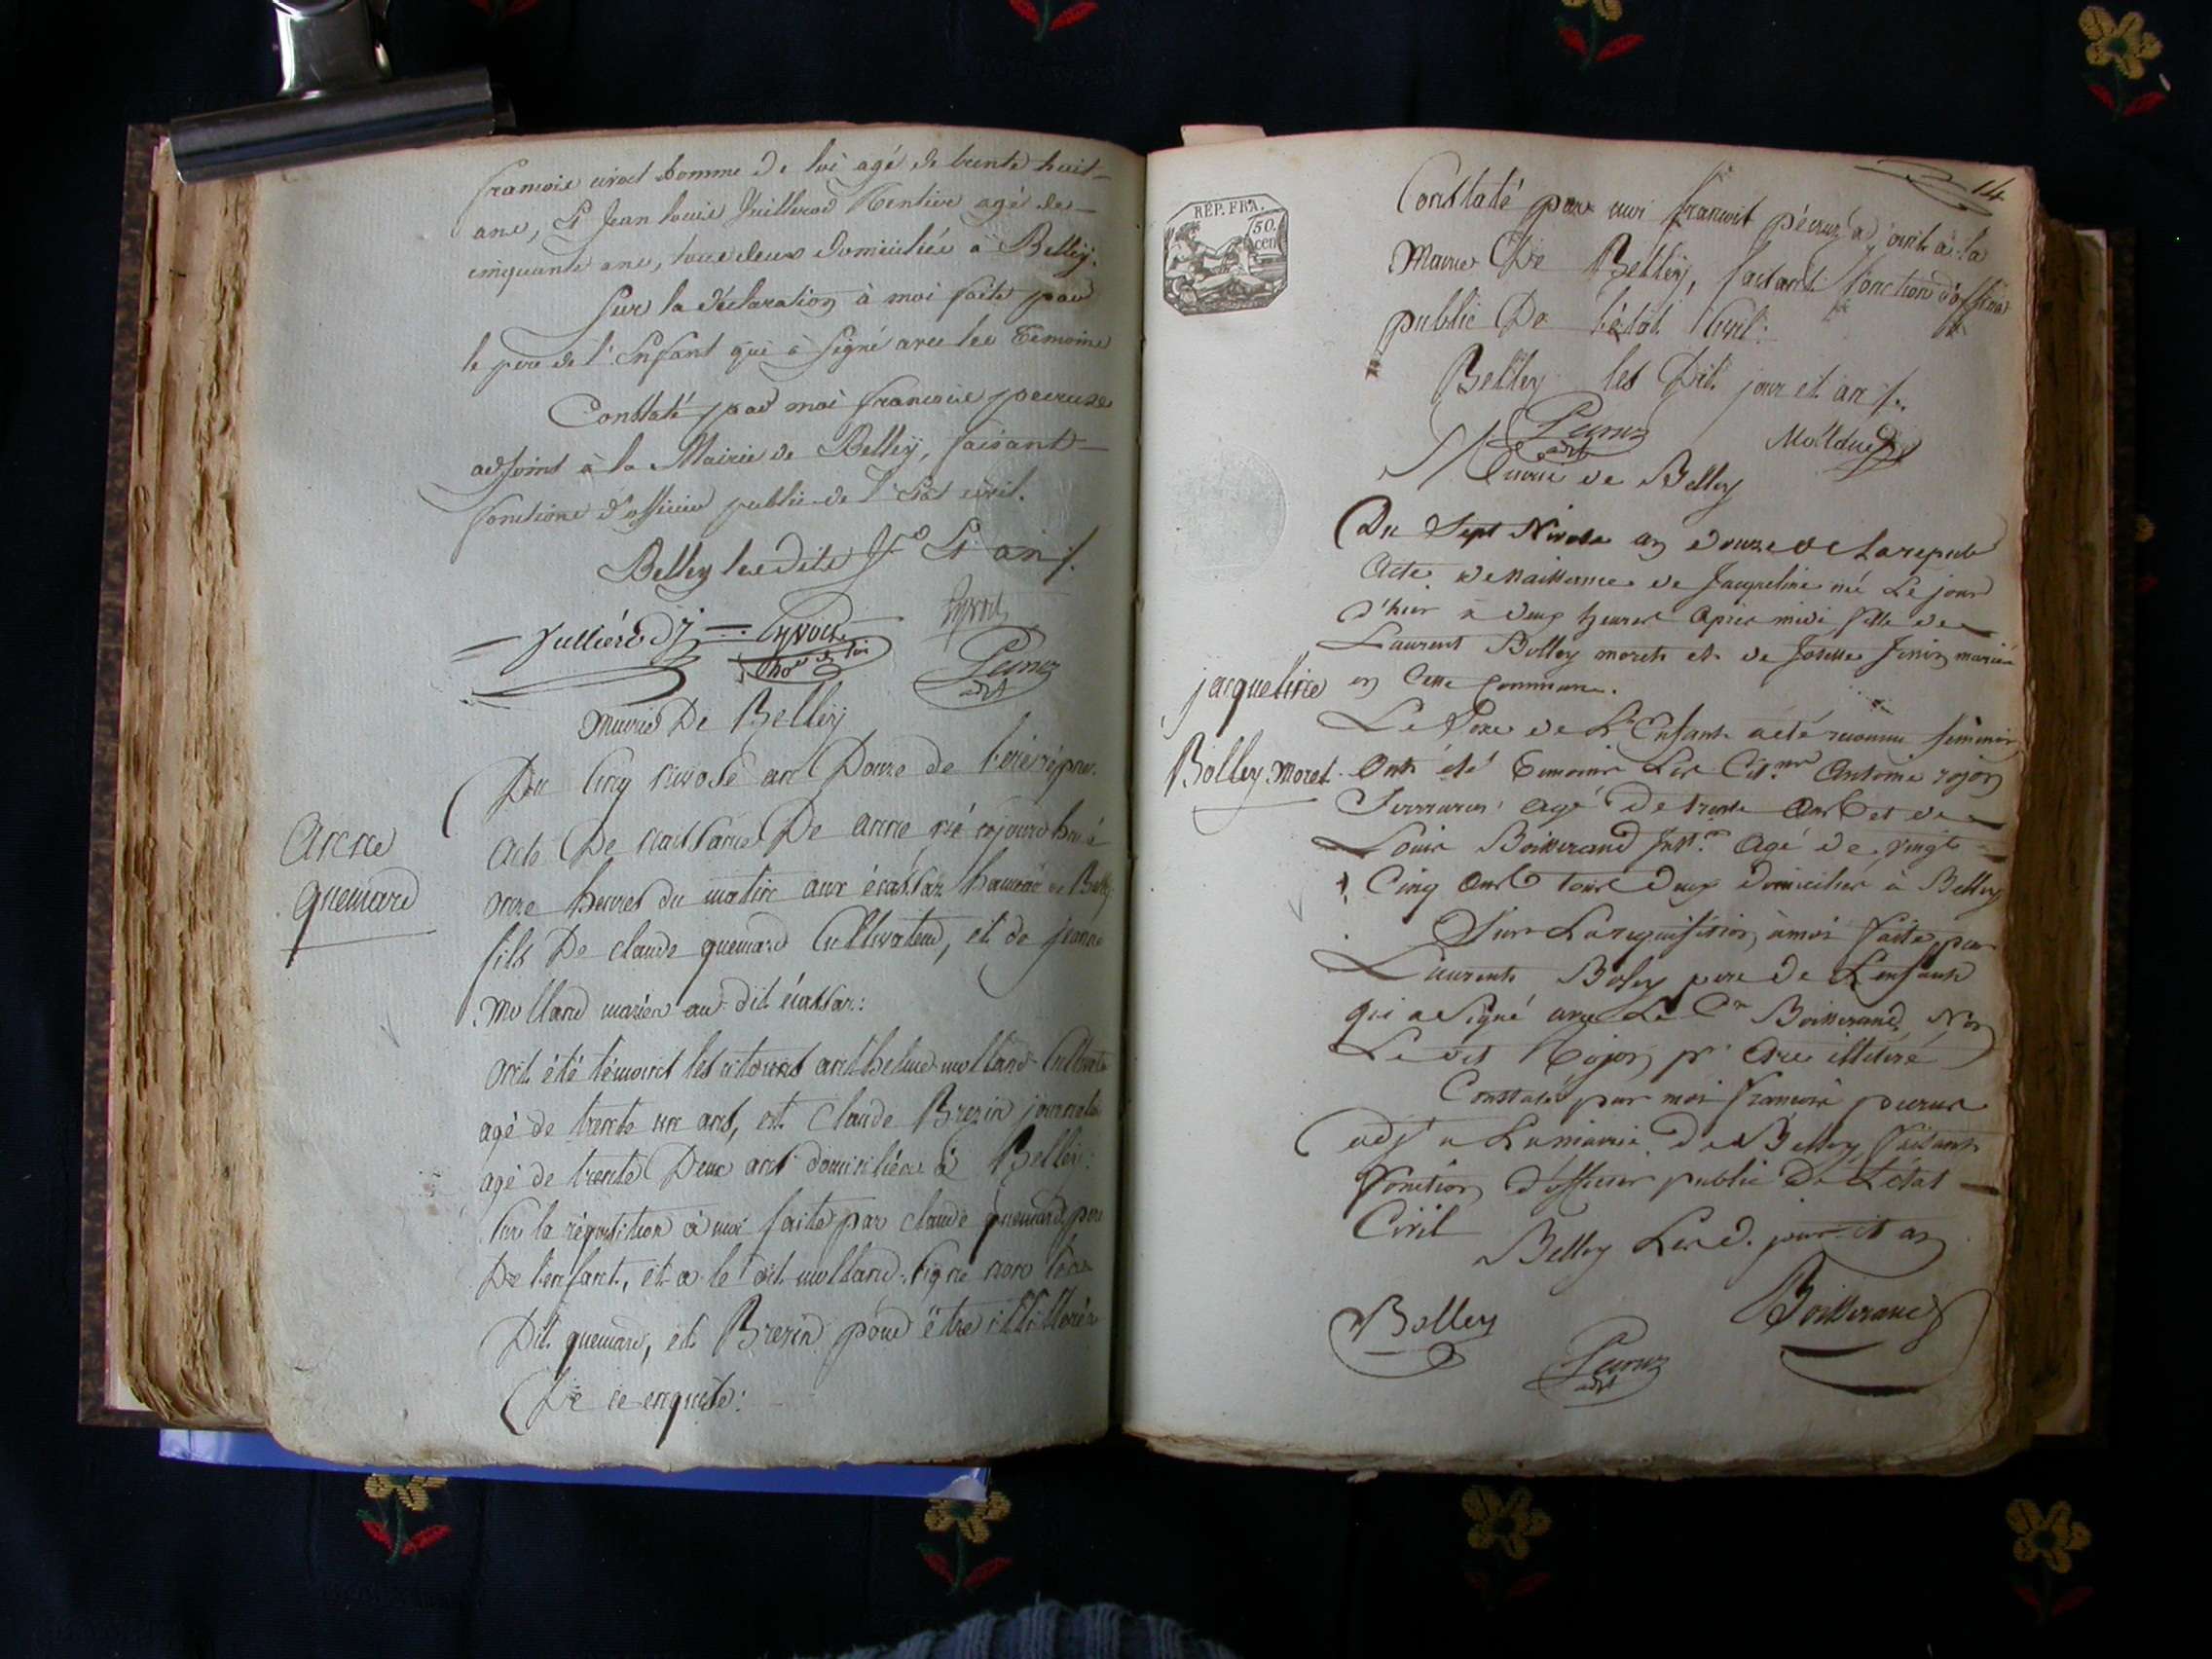 homme de loi agé de trente huit
ans, Et Jean Louis Juillerod Rentier agé de
cinquante ans, tous deux domiciliés à Belley.
Sur la déclaration à moi faite par
le pere de l'Enfant qui à signé avec les Temoins
Constaté par moi francois pecruze
adjoint à la Mairie de Belley, faisant
fonctions d'officier public de l'Etat civil.
Belley lesdits Jr Et an /.
Pecruz
adjt
Mairie De Belley
Du Cinq nivose an Douze de
Anne
quemard
acte De naissance De anne né aujourd'hui à
onze heures du matin aux écassaz hameau de Belley
fils De claude quemard Cultivateur, et de jeanne
Molland mariés au dit écassaz:
ont été témoins les citoyens anthelme molland Cultivate
agé de trente un ans, et Claude Brezin journal
agé de trente Deux ans domiciliés à Belley:
Sur la réquisition à moi faite par claude quemard pere
De l'enfant, et a le dit molland signé non les
Dit quemard, et Brezin pour être illitterés
De ce enquete:
14
REP. FRA.
50.
cen
Constaté par moi francois pécruz adjoint à la
Mairie De Belley, faisant fonction d'officier
public De l'état Civil:
Belley les Dit jour et an /.
Pecruz
adjt
Mairie de Belley
Du Sept Nivose an douze de La repub
Acte de naissance de Jacqueline né Le jour
d'hier à deux heures après midi fille de
Laurent Bolley moret et de Josette Jenin mariés
en Cette Commune.
jacqueline
Bolley Moret
Le Sexe de L'Enfant a été reconnu féminin
Ont été temoins Les Cit.ens Antoine rojon
Serrurier agé de trente Ans et de
Louis Boisserand agé de vingt
Cinq Ans tous deux domiciliés à Belley
Sur La requisition à moi faite par
Laurent Boley pere de L'enfant
qui a signé avec Le Cen Boisserand, Non
Le dit Rojon pr etre illitéré
Constaté par moi francois pecruz
adjt a La mairie de Belley faisant
fonction d'officier public De L'état
Civil
Belley Lesd. jour et an
Bolley
Boisserand
Pecruz
adjt